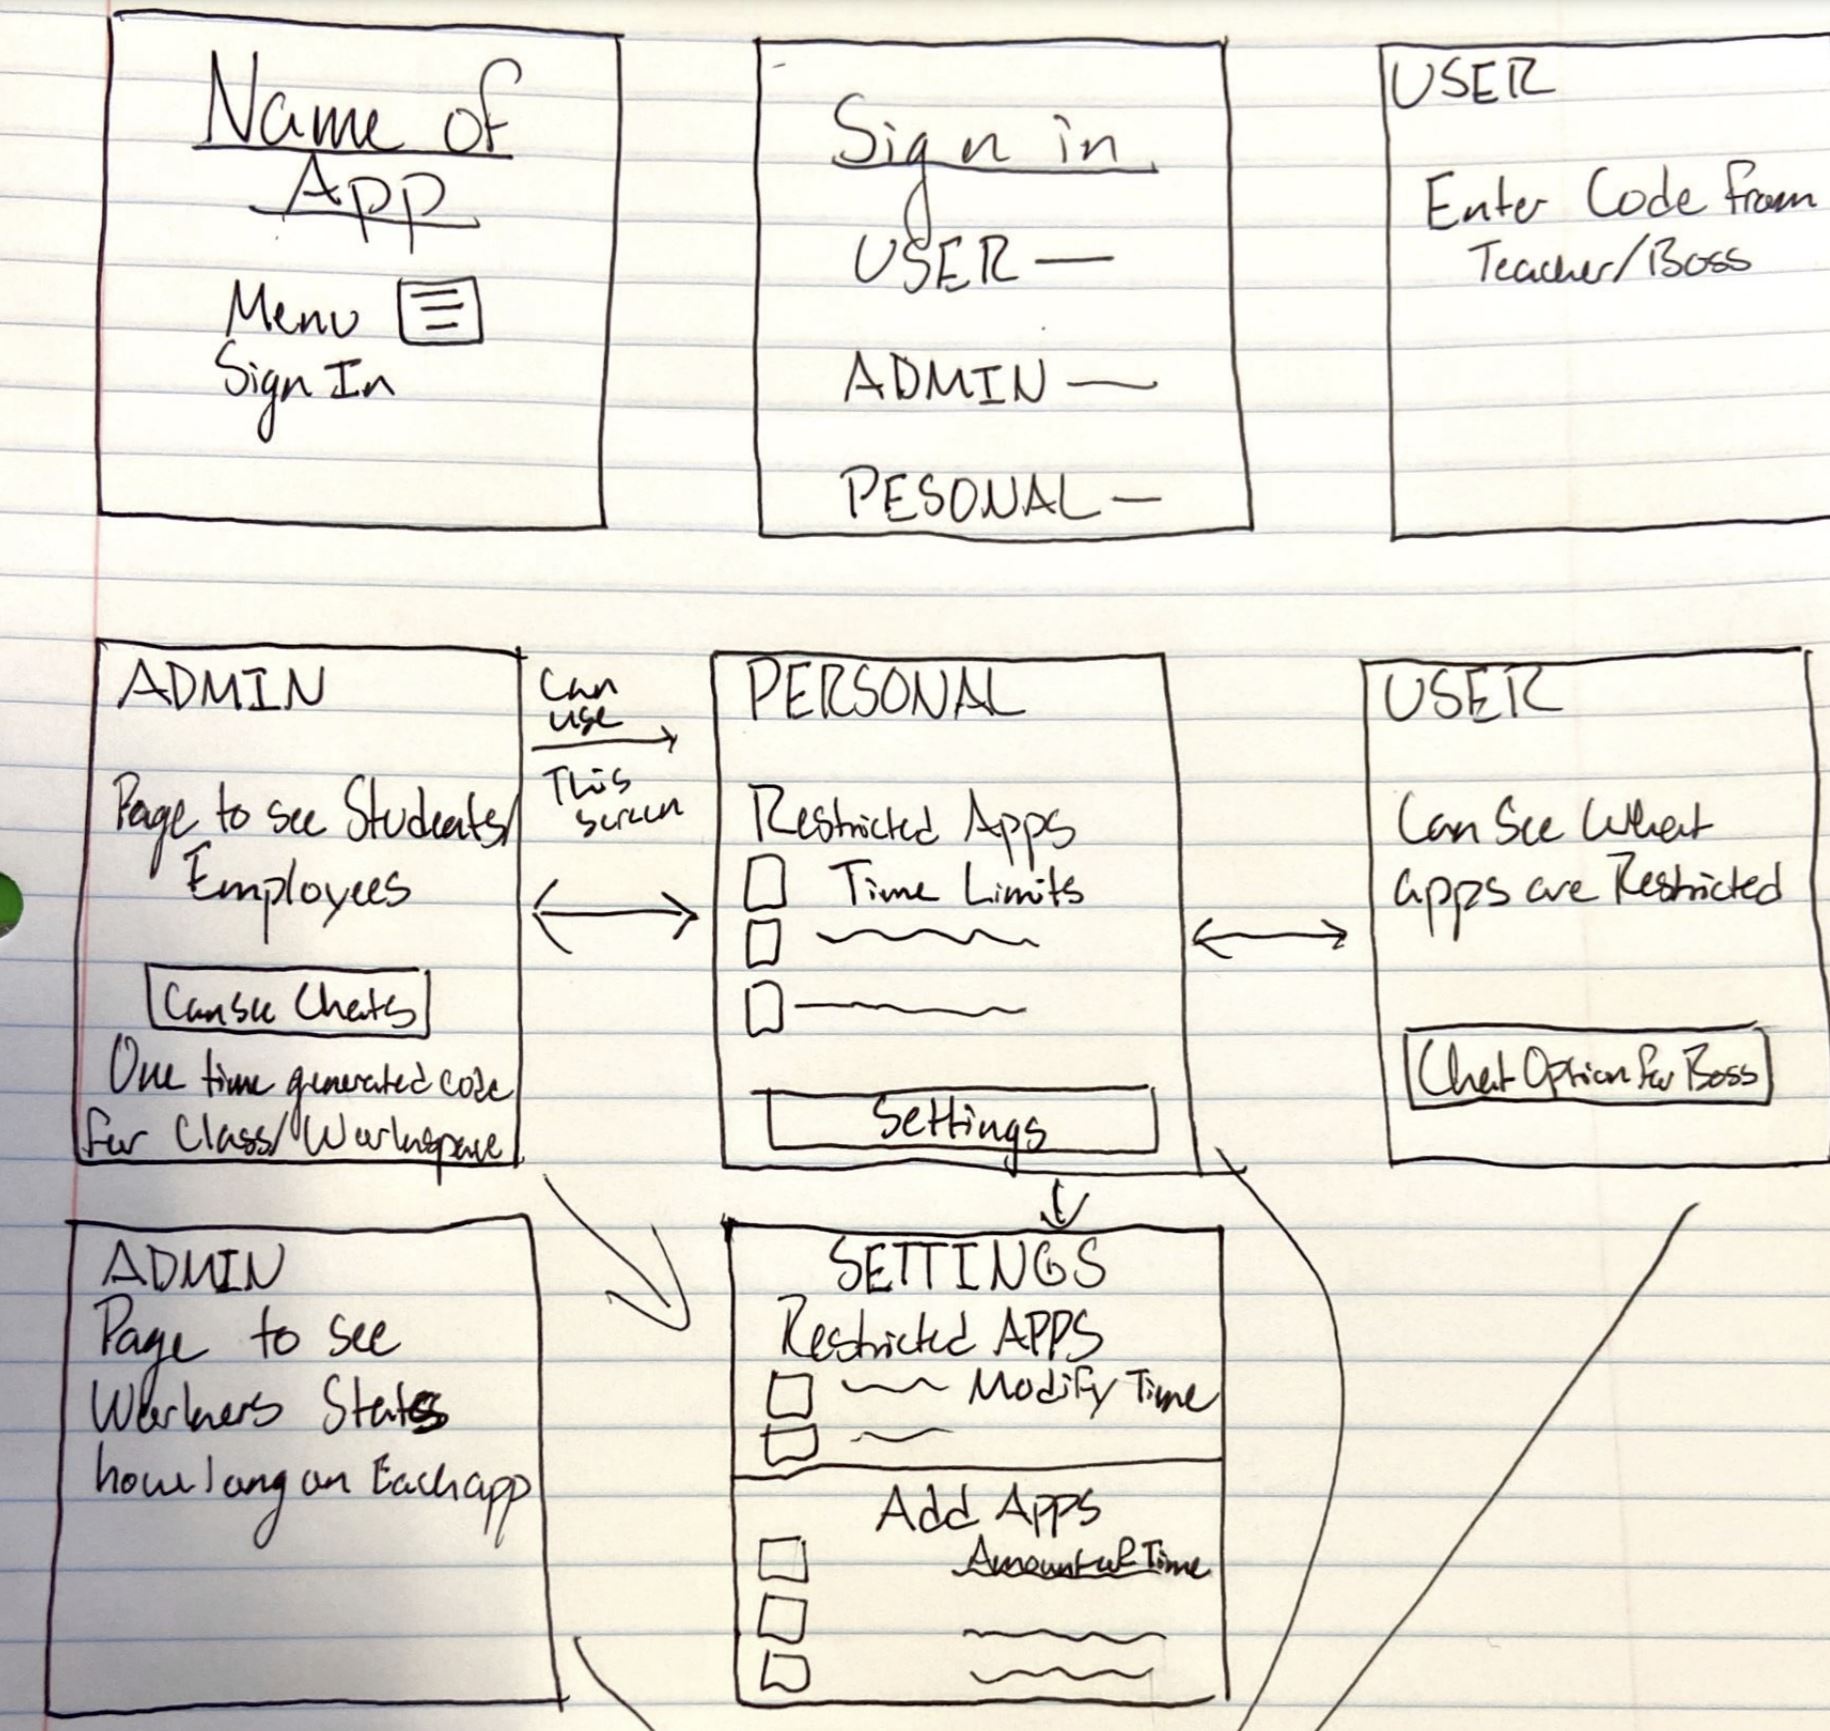 Name of
App
Menu
Sign In
Sign in
USER —
ADMIN —
PESONAL —
USER
Enter Code from
Teacher/Boss
ADMIN
Page to see Students/
Employees
Can see Chats
One time generated code
for Class/Workspace
Can
use
This
screen
PERSONAL
Restricted Apps
Time Limits
Settings
USER
Can See What
apps are Restricted
Chat Option for Boss
ADMIN
Page to see
Workers Stats
how long on Each app
SETTINGS
Restricted APPS
Modify Time
Add Apps
Amount of Time